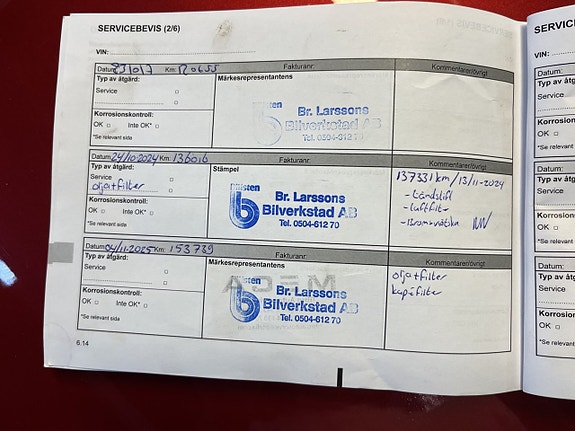 SERVICEBEVIS (2/6)
VIN:
Datum: Km: Fakturanr: Kommentarer/övrigt
Typ av åtgärd: Märkesrepresentantens
Service
Korrosionskontroll:
OK Inte OK*
*Se relevant sida
Br. Larssons
Bilverkstad AB
Tel. 0504-612 70
Datum: 24/10-2024 Km: 136016 Fakturanr: Kommentarer/övrigt
Typ av åtgärd: Stämpel
Service
olja+filter
Korrosionskontroll:
OK Inte OK*
*Se relevant sida
Br. Larssons
Bilverkstad AB
Tel. 0504-612 70
137331 km/13/11-2024
- Tändstift
- Luftfilter
- Bromsvätska
Datum: 04/11-2025 Km: 153739 Fakturanr: Kommentarer/övrigt
Typ av åtgärd: Märkesrepresentantens
Service
Korrosionskontroll:
OK Inte OK*
*Se relevant sida
Br. Larssons
Bilverkstad AB
Tel. 0504-612 70
olja+filter
kupéfilter
6.14
VIN:
Datum:
Typ av
Service
Korrosion
OK
*Se relevant
Datum:
Typ av
Service
Korrosion
OK
*Se relevant
Datum:
Typ av
Service
Korrosion
OK
*Se relevant